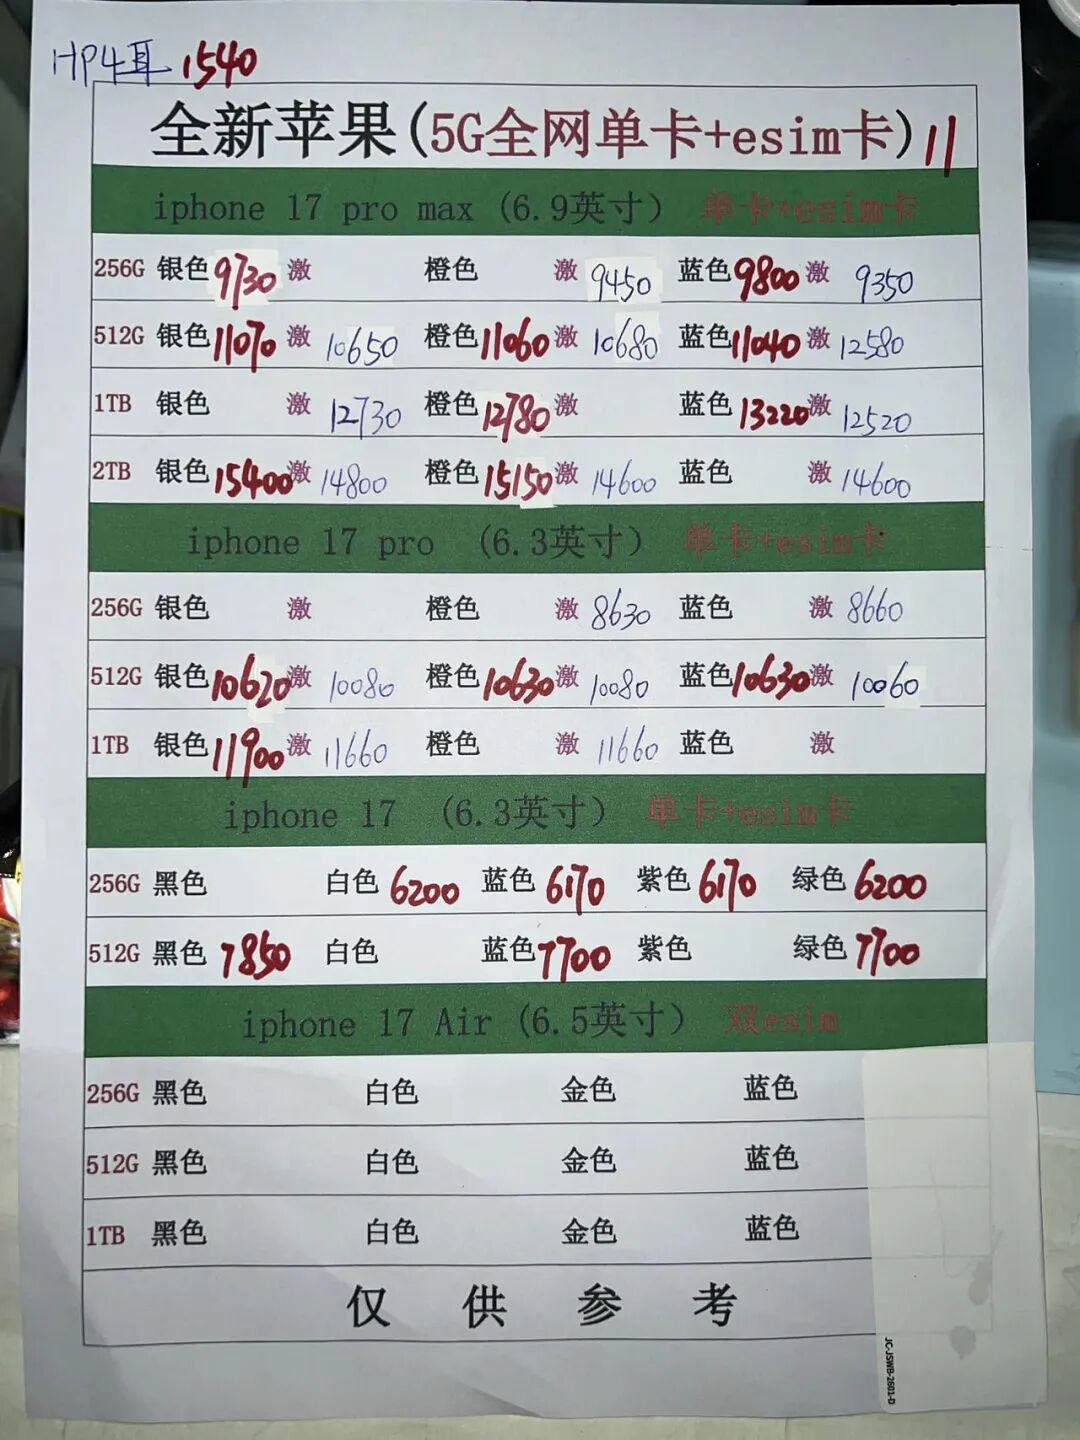 HP4耳 1540
全新苹果(5G全网单卡+esim卡) 11
iphone 17 pro max (6.9英寸) 单卡+esim卡
256G 银色 9730 激 橙色 激 9450 蓝色 9800 激 9350
512G 银色 11070 激 10650 橙色 11060 激 10680 蓝色 11040 激 12580
1TB 银色 激 12730 橙色 12780 激 蓝色 13220 激 12520
2TB 银色 15400 激 14800 橙色 15150 激 14600 蓝色 激 14600
iphone 17 pro (6.3英寸) 单卡+esim卡
256G 银色 激 橙色 激 8630 蓝色 激 8660
512G 银色 10620 激 10080 橙色 10630 激 10080 蓝色 10630 激 10060
1TB 银色 11900 激 11660 橙色 激 11660 蓝色 激
iphone 17 (6.3英寸) 单卡+esim卡
256G 黑色 白色 6200 蓝色 6170 紫色 6170 绿色 6200
512G 黑色 7850 白色 蓝色 7700 紫色 绿色 7700
iphone 17 Air (6.5英寸) 双esim
256G 黑色 白色 金色 蓝色
512G 黑色 白色 金色 蓝色
1TB 黑色 白色 金色 蓝色
仅供参考
JC-JSWB-2601-D